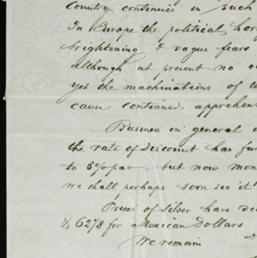 country continues in such
In Europe the political hor
brightening & vague fears
although at present no ou
yet the machinations of t
cause continued apprehen
Business in general o
the rate of discount has fa
to 5% pa. but now mon
we shall perhaps soon see it
Prices of Silver have de
62 7/8 for a Mexican Dollars
We remain